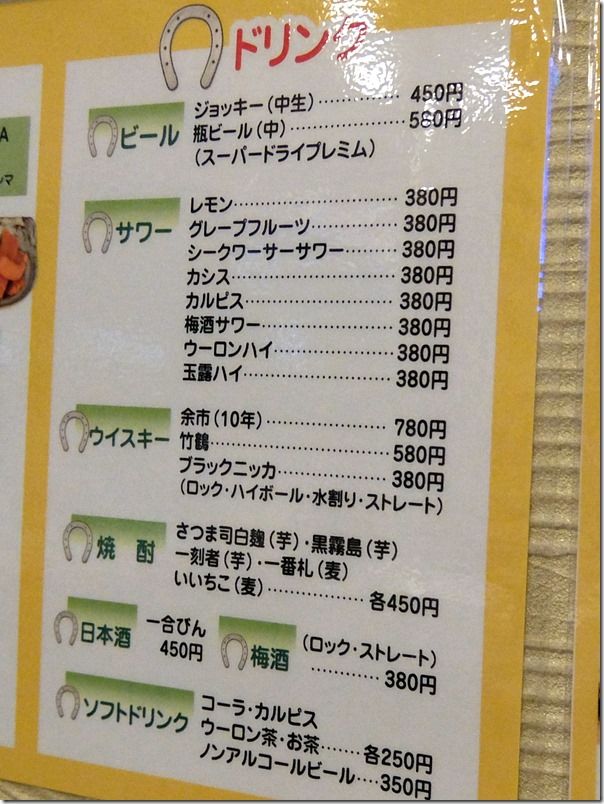 ドリンク
ビール
ジョッキー(中生)………… 450円
瓶ビール(中)…………… 580円
(スーパードライプレミム)
サワー
レモン…………………… 380円
グレープフルーツ………… 380円
シークワーサーサワー…… 380円
カシス…………………… 380円
カルピス………………… 380円
梅酒サワー……………… 380円
ウーロンハイ…………… 380円
玉露ハイ………………… 380円
ウイスキー
余市(10年)……………… 780円
竹鶴……………………… 580円
ブラックニッカ…………… 380円
(ロック・ハイボール・水割り・ストレート)
焼 酎
さつま司白麹(芋)・黒霧島(芋)
一刻者(芋)・一番札(麦)
いいちこ(麦)…………… 各450円
日本酒
一合びん
450円
梅酒
(ロック・ストレート)
………… 380円
ソフトドリンク
コーラ・カルピス
ウーロン茶・お茶…… 各250円
ノンアルコールビール…… 350円
A